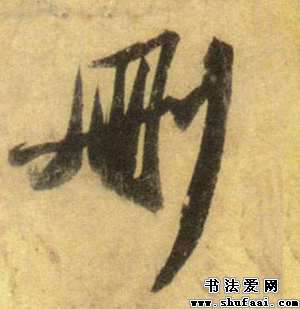 删
书法爱网
www.shufaai.com